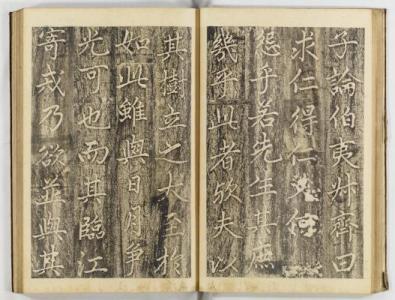 子論伯夷叔齊曰
求仁得仁又何
怨乎若先生其庶
幾乎此者歟夫以
其樹立之大至於
如此雖與日月爭
光可也而其臨江
寄戎乃欲並與其